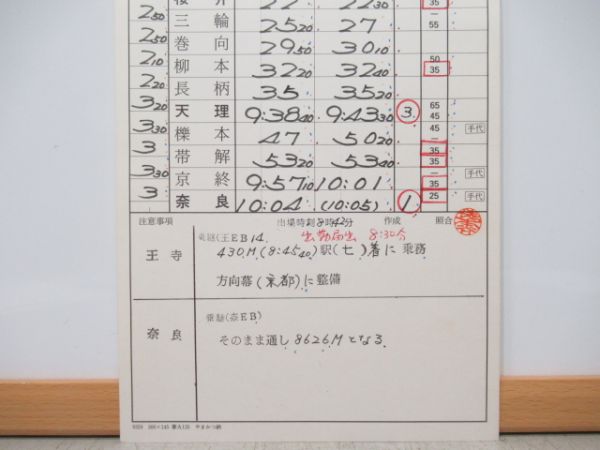 桜井 22 22 30 35
2 50 三輪 25 20 27 — 55
2 50 巻向 29 50 30 10
2 10 柳本 32 20 32 40 50 35
2 20 長柄 35 35 20
3 20 天理 9:38 40 9:43 30 3 65 45
3 30 櫟本 47 50 20 45 — 手代
3 帯解 53 20 53 40 35 35
3 30 京終 9:57 10 10:01 — 35 手代
3 奈良 10:04 (10:05) 1 25 手代
注意事項 出場時刻8時42分 作成 照合
出勤届出 8:30分
王寺 乗継(王EB14.
430M(8:45 40)駅(七)着に乗務
方向幕(京都)に整備
奈良 乗継(奈EB)
そのまま通し8626Mとなる